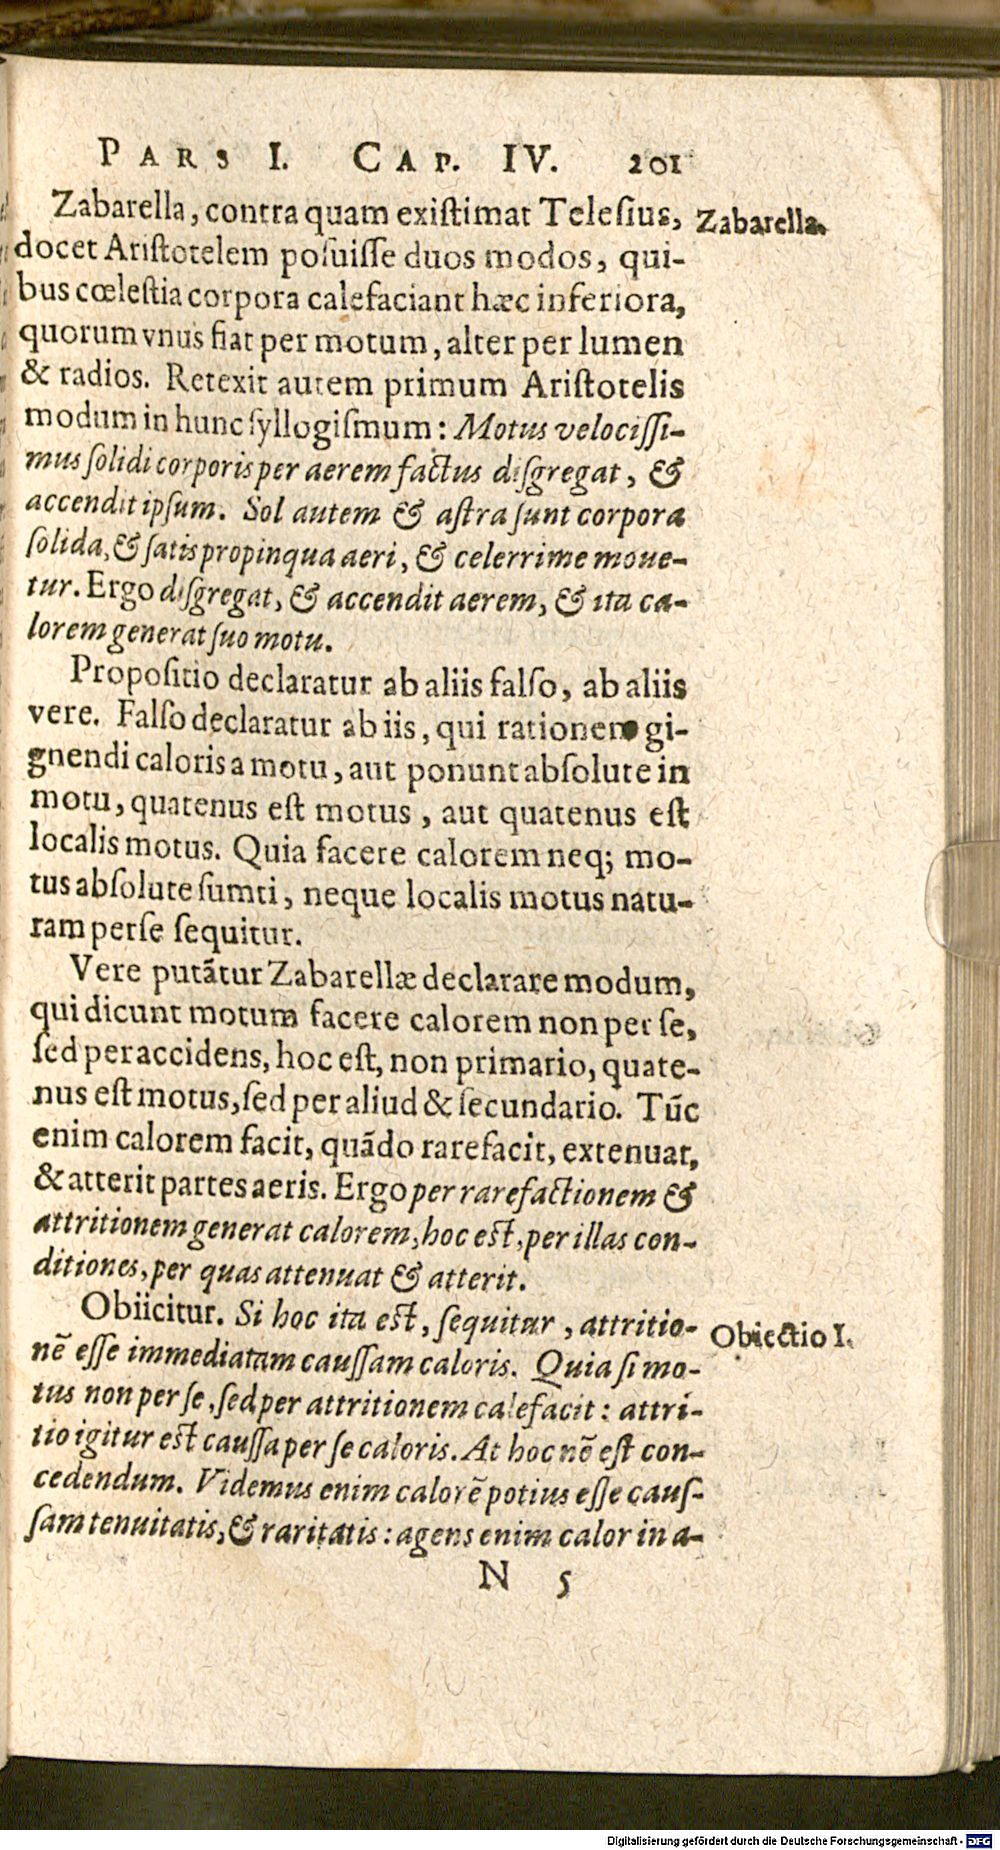 PARS I. CAP. IV. 201
Zabarella, contra quam exiſtimat Teleſius, Zabarella.
docet Ariſtotelem poſuiſſe duos modos, qui-
bus cœleſtia corpora calefaciant hæc inferiora,
quorum vnus fiat per motum, alter per lumen
& radios. Retexit autem primum Ariſtotelis
modum in hunc ſyllogiſmum: Motus velociſſi-
mus ſolidi corporis per aerem factus diſgregat, &
accendit ipſum. Sol autem & aſtra ſunt corpora
ſolida, & ſatis propinqua aeri, & celerrime moue-
tur. Ergo diſgregat, & accendit aerem, & ita ca-
lorem generat ſuo motu.
Propoſitio declaratur ab aliis falſo, ab aliis
vere. Falſo declaratur ab iis, qui rationem gi-
gnendi caloris a motu, aut ponunt abſolute in
motu, quatenus eſt motus, aut quatenus eſt
localis motus. Quia facere calorem neq; mo-
tus abſolute ſumti, neque localis motus natu-
ram perſe ſequitur.
Vere putãtur Zabarellæ declarare modum,
qui dicunt motum facere calorem non per ſe,
ſed per accidens, hoc eſt, non primario, quate-
nus eſt motus, ſed per aliud & ſecundario. Tũc
enim calorem facit, quãdo rarefacit, extenuat,
& atterit partes aeris. Ergo per rarefactionem &
attritionem generat calorem, hoc eſt, per illas con-
ditiones, per quas attenuat & atterit.
Obiicitur. Si hoc ita eſt, ſequitur, attritio- Obiectio I.
nẽ eſſe immediatam cauſſam caloris. Quia ſi mo-
tus non per ſe, ſed per attritionem calefacit: attri-
tio igitur eſt cauſſa per ſe caloris. At hoc nẽ eſt con-
cedendum. Videmus enim calorẽ potius eſſe cauſ-
ſam tenuitatis, & raritatis: agens enim calor in a-
N 5
Digitalisierung gefördert durch die Deutsche Forschungsgemeinschaft - DFG